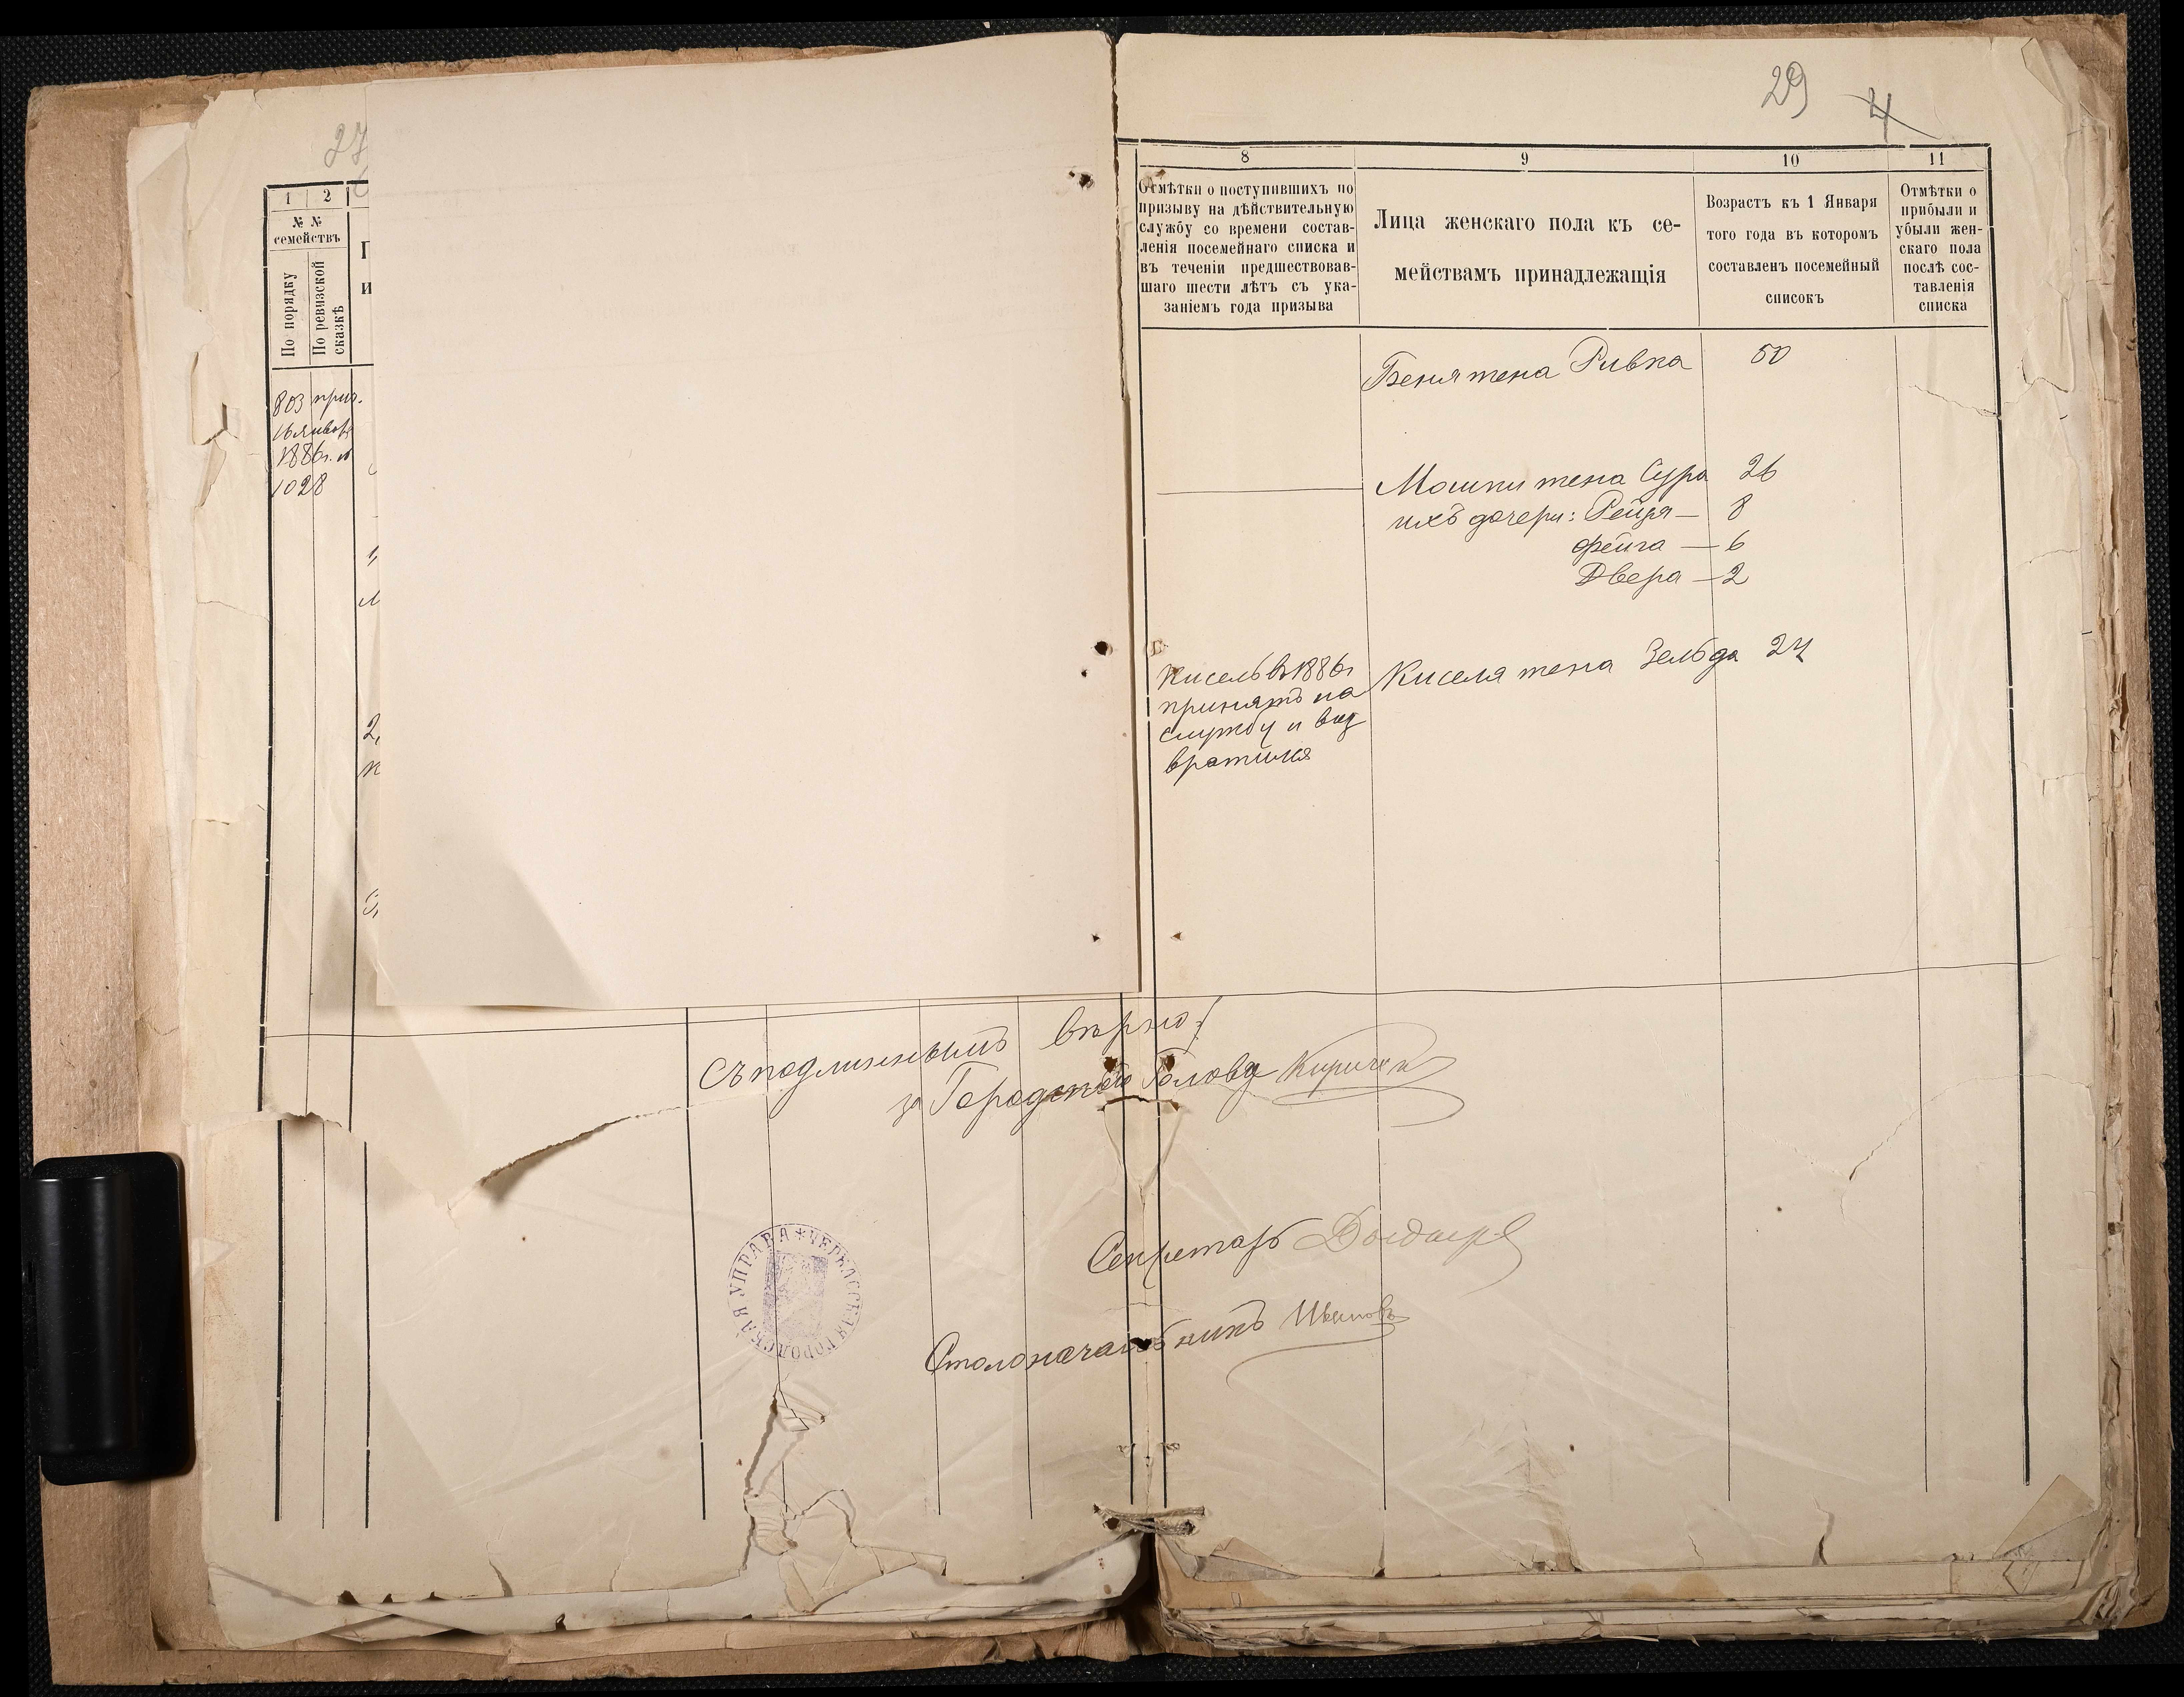 27
29 4
1 2
№ №
семействъ
По порядку
По ревизской
сказкѣ
803 прич.
16 январ
1886 г. №
1028
8
Отмѣтки о поступившихъ по
призыву на дѣйствительную
службу со времени состав-
ленія посемейнаго списка и
въ теченіи предшествовав-
шаго шести лѣтъ съ ука-
заніемъ года призыва
9
Лица женскаго пола къ се-
мействамъ принадлежащія
10
Возрастъ къ 1 Января
того года въ которомъ
составленъ посемейный
списокъ
11
Отмѣтки о
прибыли и
убыли жен-
скаго пола
послѣ сос-
тавленія
списка
Беня жена Ривка 50
Мошки жена Сура 26
ихъ дочери: Рейзя — 8
Фейга — 6
Двера — 2
Кисель въ 1886 г
принятъ на
службу и воз
вратился
Киселя жена Зельда 24
Съ подлиннымъ вѣрно:
за Городского Голову Киричек
Секретарь
Столоначальникъ Ивановъ
ЧЕРКАССКАЯ ГОРОДСКАЯ УПРАВА